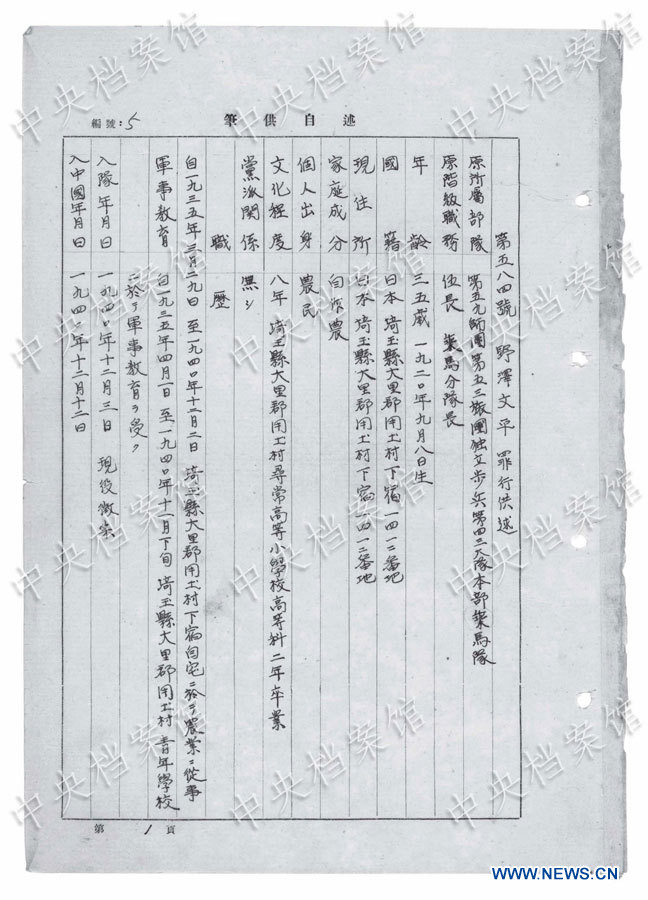 編號:5
筆供自述
第五八四號 野澤文平 罪行供述
原所屬部隊 第五九師團第五三旅團独立步兵第四三大隊本部乗馬隊
原階級職務 伍長 乗馬分隊長
年齡 三五歲 一九二〇年九月八日生
國籍 日本 埼玉縣大里郡用土村下宿一四一二番地
現住所 日本 埼玉縣大里郡用土村下宿一四一二番地
家庭成分 自作農
個人出身 農民
文化程度 八年 埼玉縣大里郡用土村尋常高等小學校高等科二年卒業
黨派關係 無シ
職歷
自一九三五年三月二九日 至一九四〇年十二月二日 埼玉縣大里郡用土村下宿自宅ニ於テ農業ニ從事
軍事教育 自一九三五年四月一日 至一九四〇年十一月下旬 埼玉縣大里郡用土村 青年學校
ニ於テ軍事教育ヲ受ク
入隊年月日 一九四〇年十二月三日 現役徴集
入中國年月日 一九四〇年十二月十二日
第1頁
中央档案馆
中央档案馆
中央档案馆
中央档案馆
中央档案馆
中央档案馆
WWW.NEWS.CN